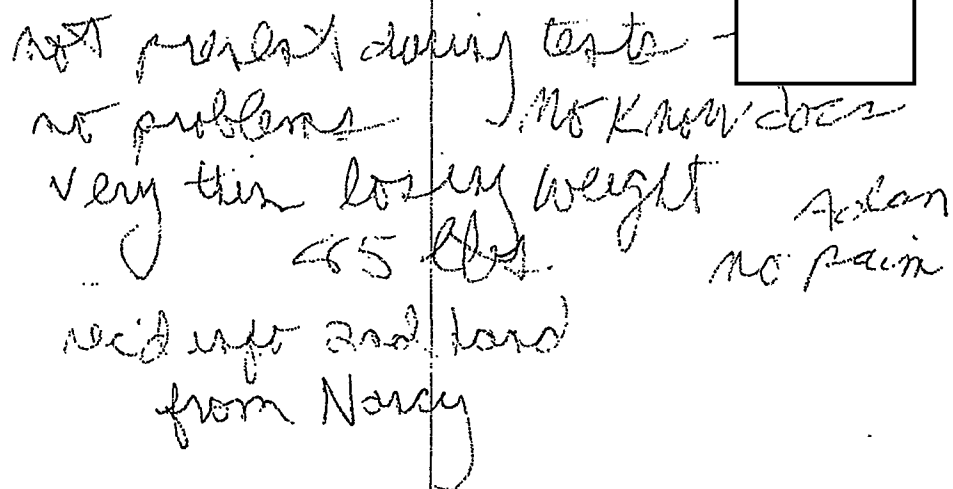 not present during tests -
no problems No know docs
very thin losing weight
85 lbs. no pain
rec'd info 2nd hand
from Nancy